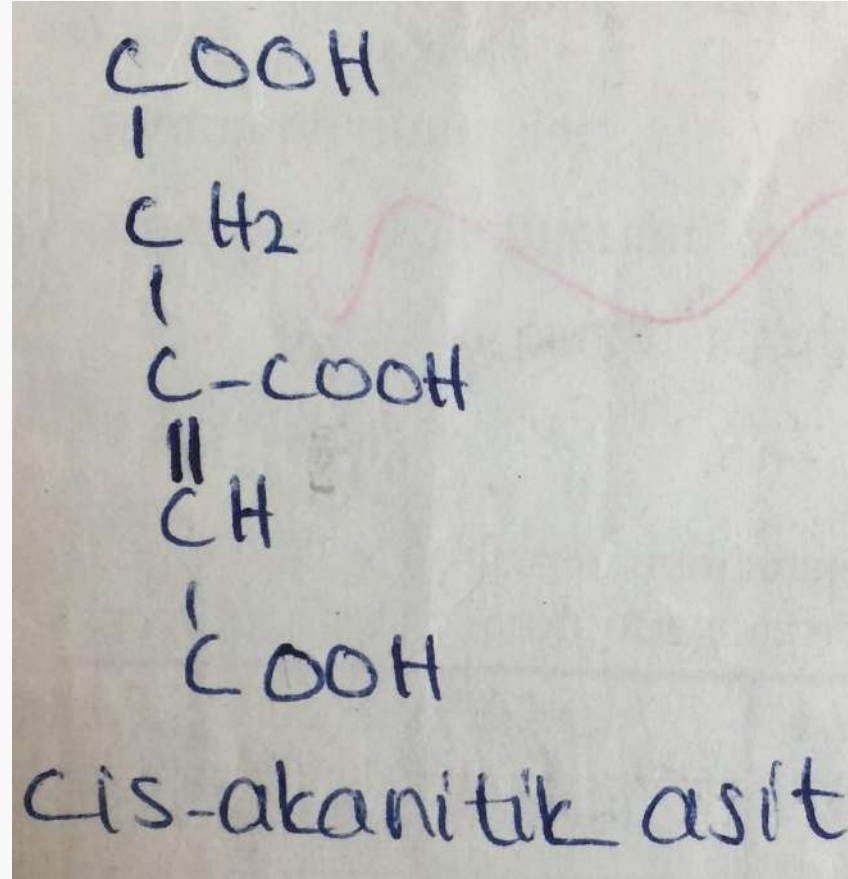 COOH
CH2
C-COOH
CH
COOH
cis-akanitik asit